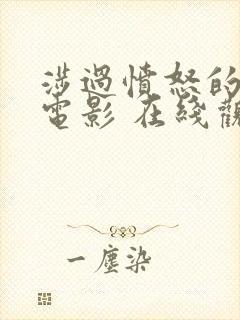 涉過憤怒的
電影 在綫觀
一塵染